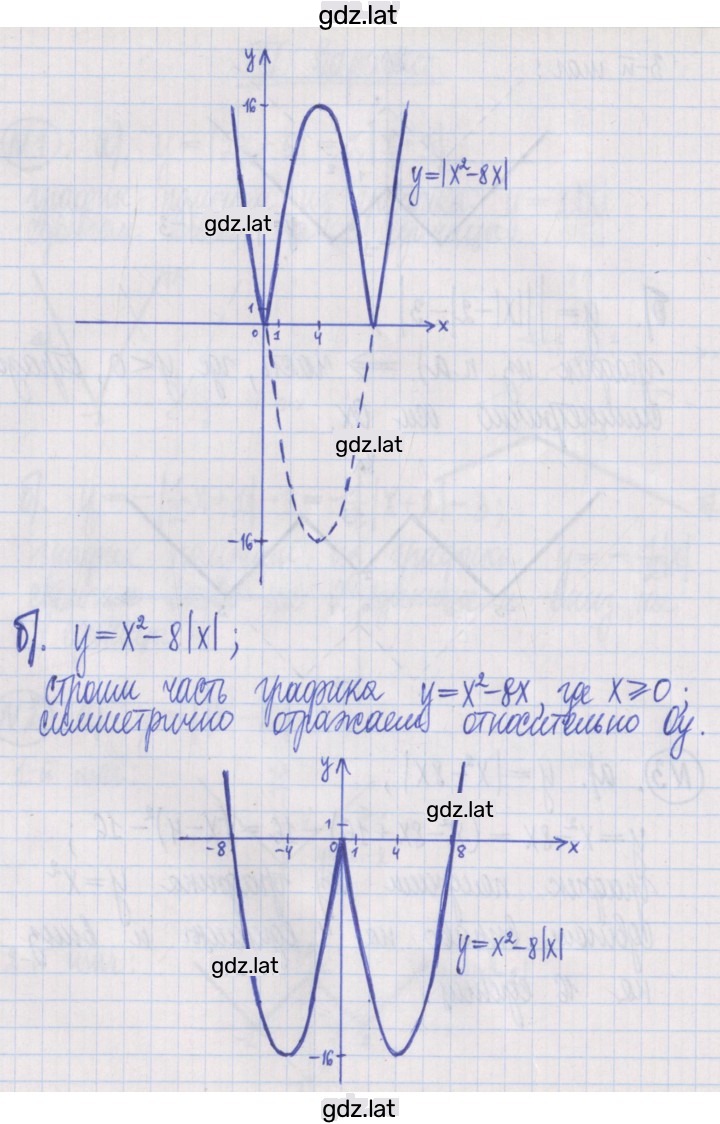 gdz.lat
y
16
y=|x²-8x|
gdz.lat
1
0 1 4 x
gdz.lat
-16
б). y=x²-8|x|;
строим часть графика y=x²-8x, где x⩾0;
симметрично отражаем относительно Oy.
y
gdz.lat
1
-8 -4 0 1 4 8 x
y=x²-8|x|
gdz.lat
-16
gdz.lat